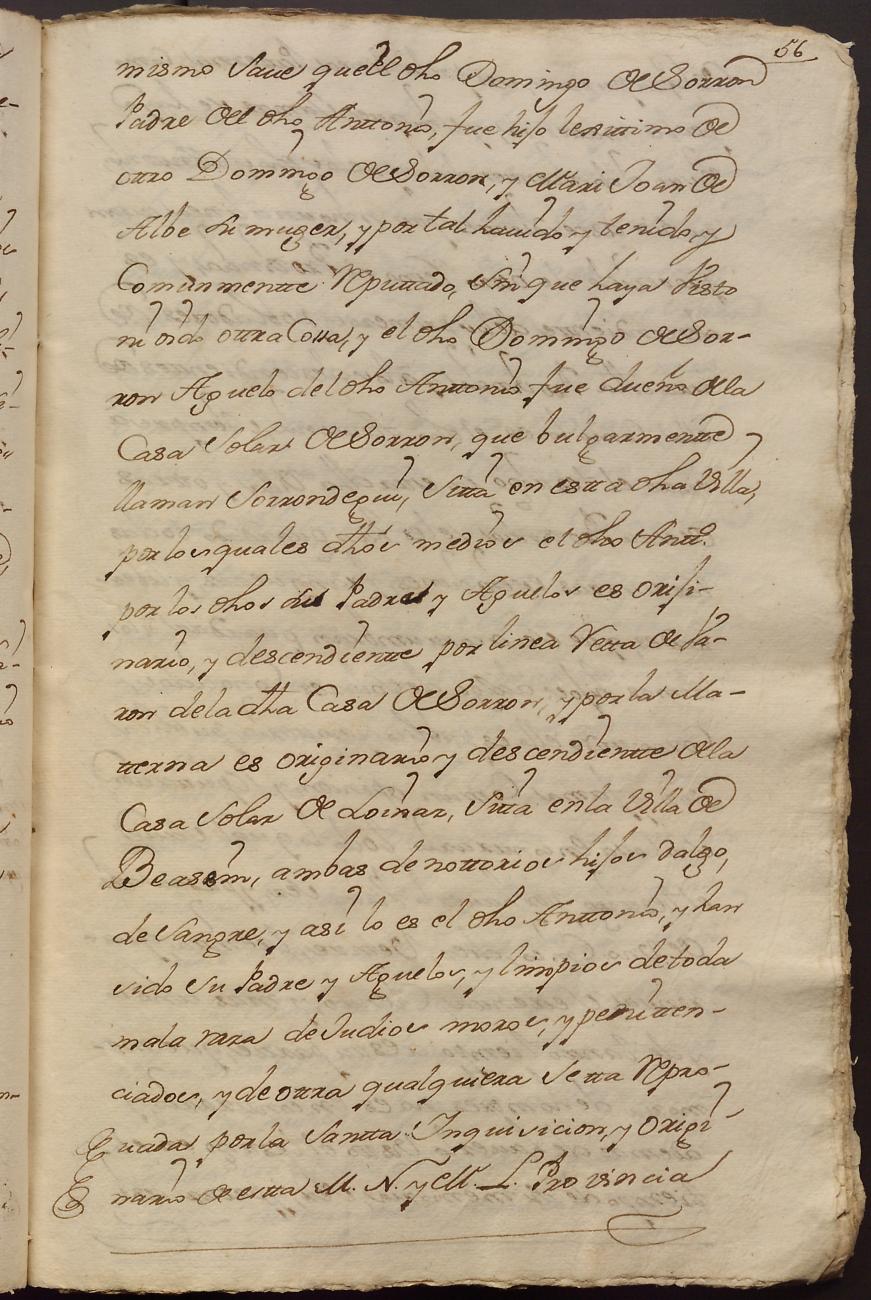 56
mismo saue quell dho Domingo de Sorron
Padre del dho Anttonio, fue hijo lexittimo de
otro Domingo de Sorron, y Mari Joan de
Albe su muger, y por tal hauido y tenido, y
Comunmentte Reputtado, sin que haya visto
ni oido ottra Cossa, y el dho Domingo de Sor-
ron Aguelo del dho Anttonio fue dueño de la
Casa Solar de Sorron, que bulgarmentte
llaman Sorrondegui, sitta en estta dha Villa,
por los quales dthos medios el dho Antto.
por los dhos sus Padres y Aguelos es oriji-
nario, y descendientte por linea Retta de Va-
ron de la dtha Casa de Sorron, y por la Ma-
tterna es originario y descendientte de la
Casa Solar de Loinaz, sitta en la Villa de
Beasain, ambas de nottorios hijos dalgo,
de sangre, y asi lo es el dho Anttonio, y han
sido su Padre y Aguelos, y limpios de toda
mala raza de Judios moros, y penitten-
ciados, y de ottra qualquiera Setta Repro-
uada por la Santta Inquisicion, y origi-
nario de estta M. N. y M. L. Provincia